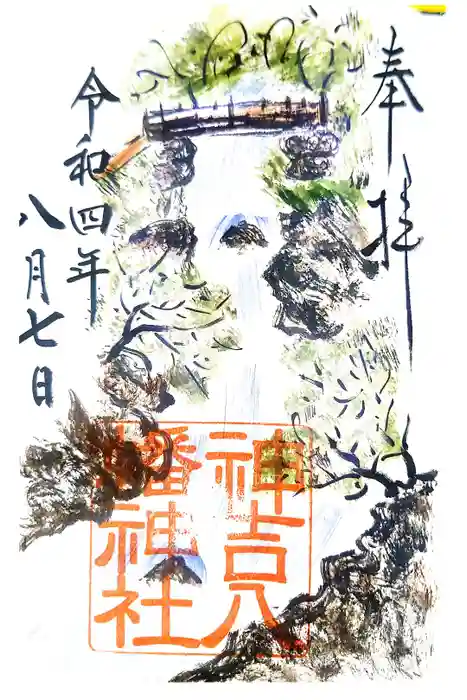 奉拝
令和四年
八月七日
神吉八
幡神社